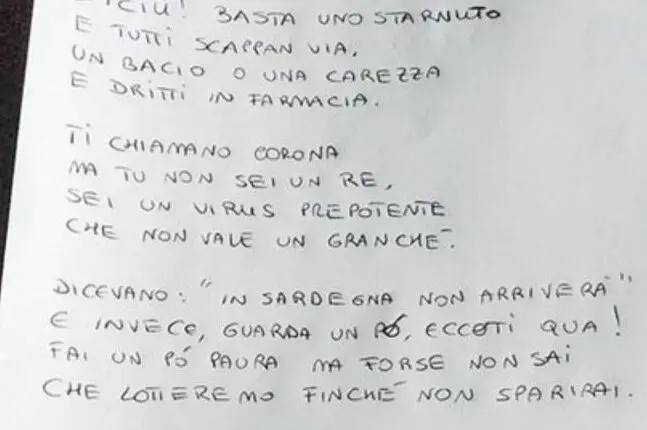 BASTA UNO STARNUTO
E TUTTI SCAPPAN VIA,
UN BACIO O UNA CAREZZA
E DRITTI IN FARMACIA.
TI CHIAMANO CORONA
MA TU NON SEI UN RE,
SEI UN VIRUS PREPOTENTE
CHE NON VALE UN GRANCHÉ.
DICEVANO: "IN SARDEGNA NON ARRIVERÀ"
E INVECE, GUARDA UN PÓ, ECCOTI QUA!
FAI UN PÓ PAURA MA FORSE NON SAI
CHE LOTTEREMO FINCHÉ NON SPARIRAI.